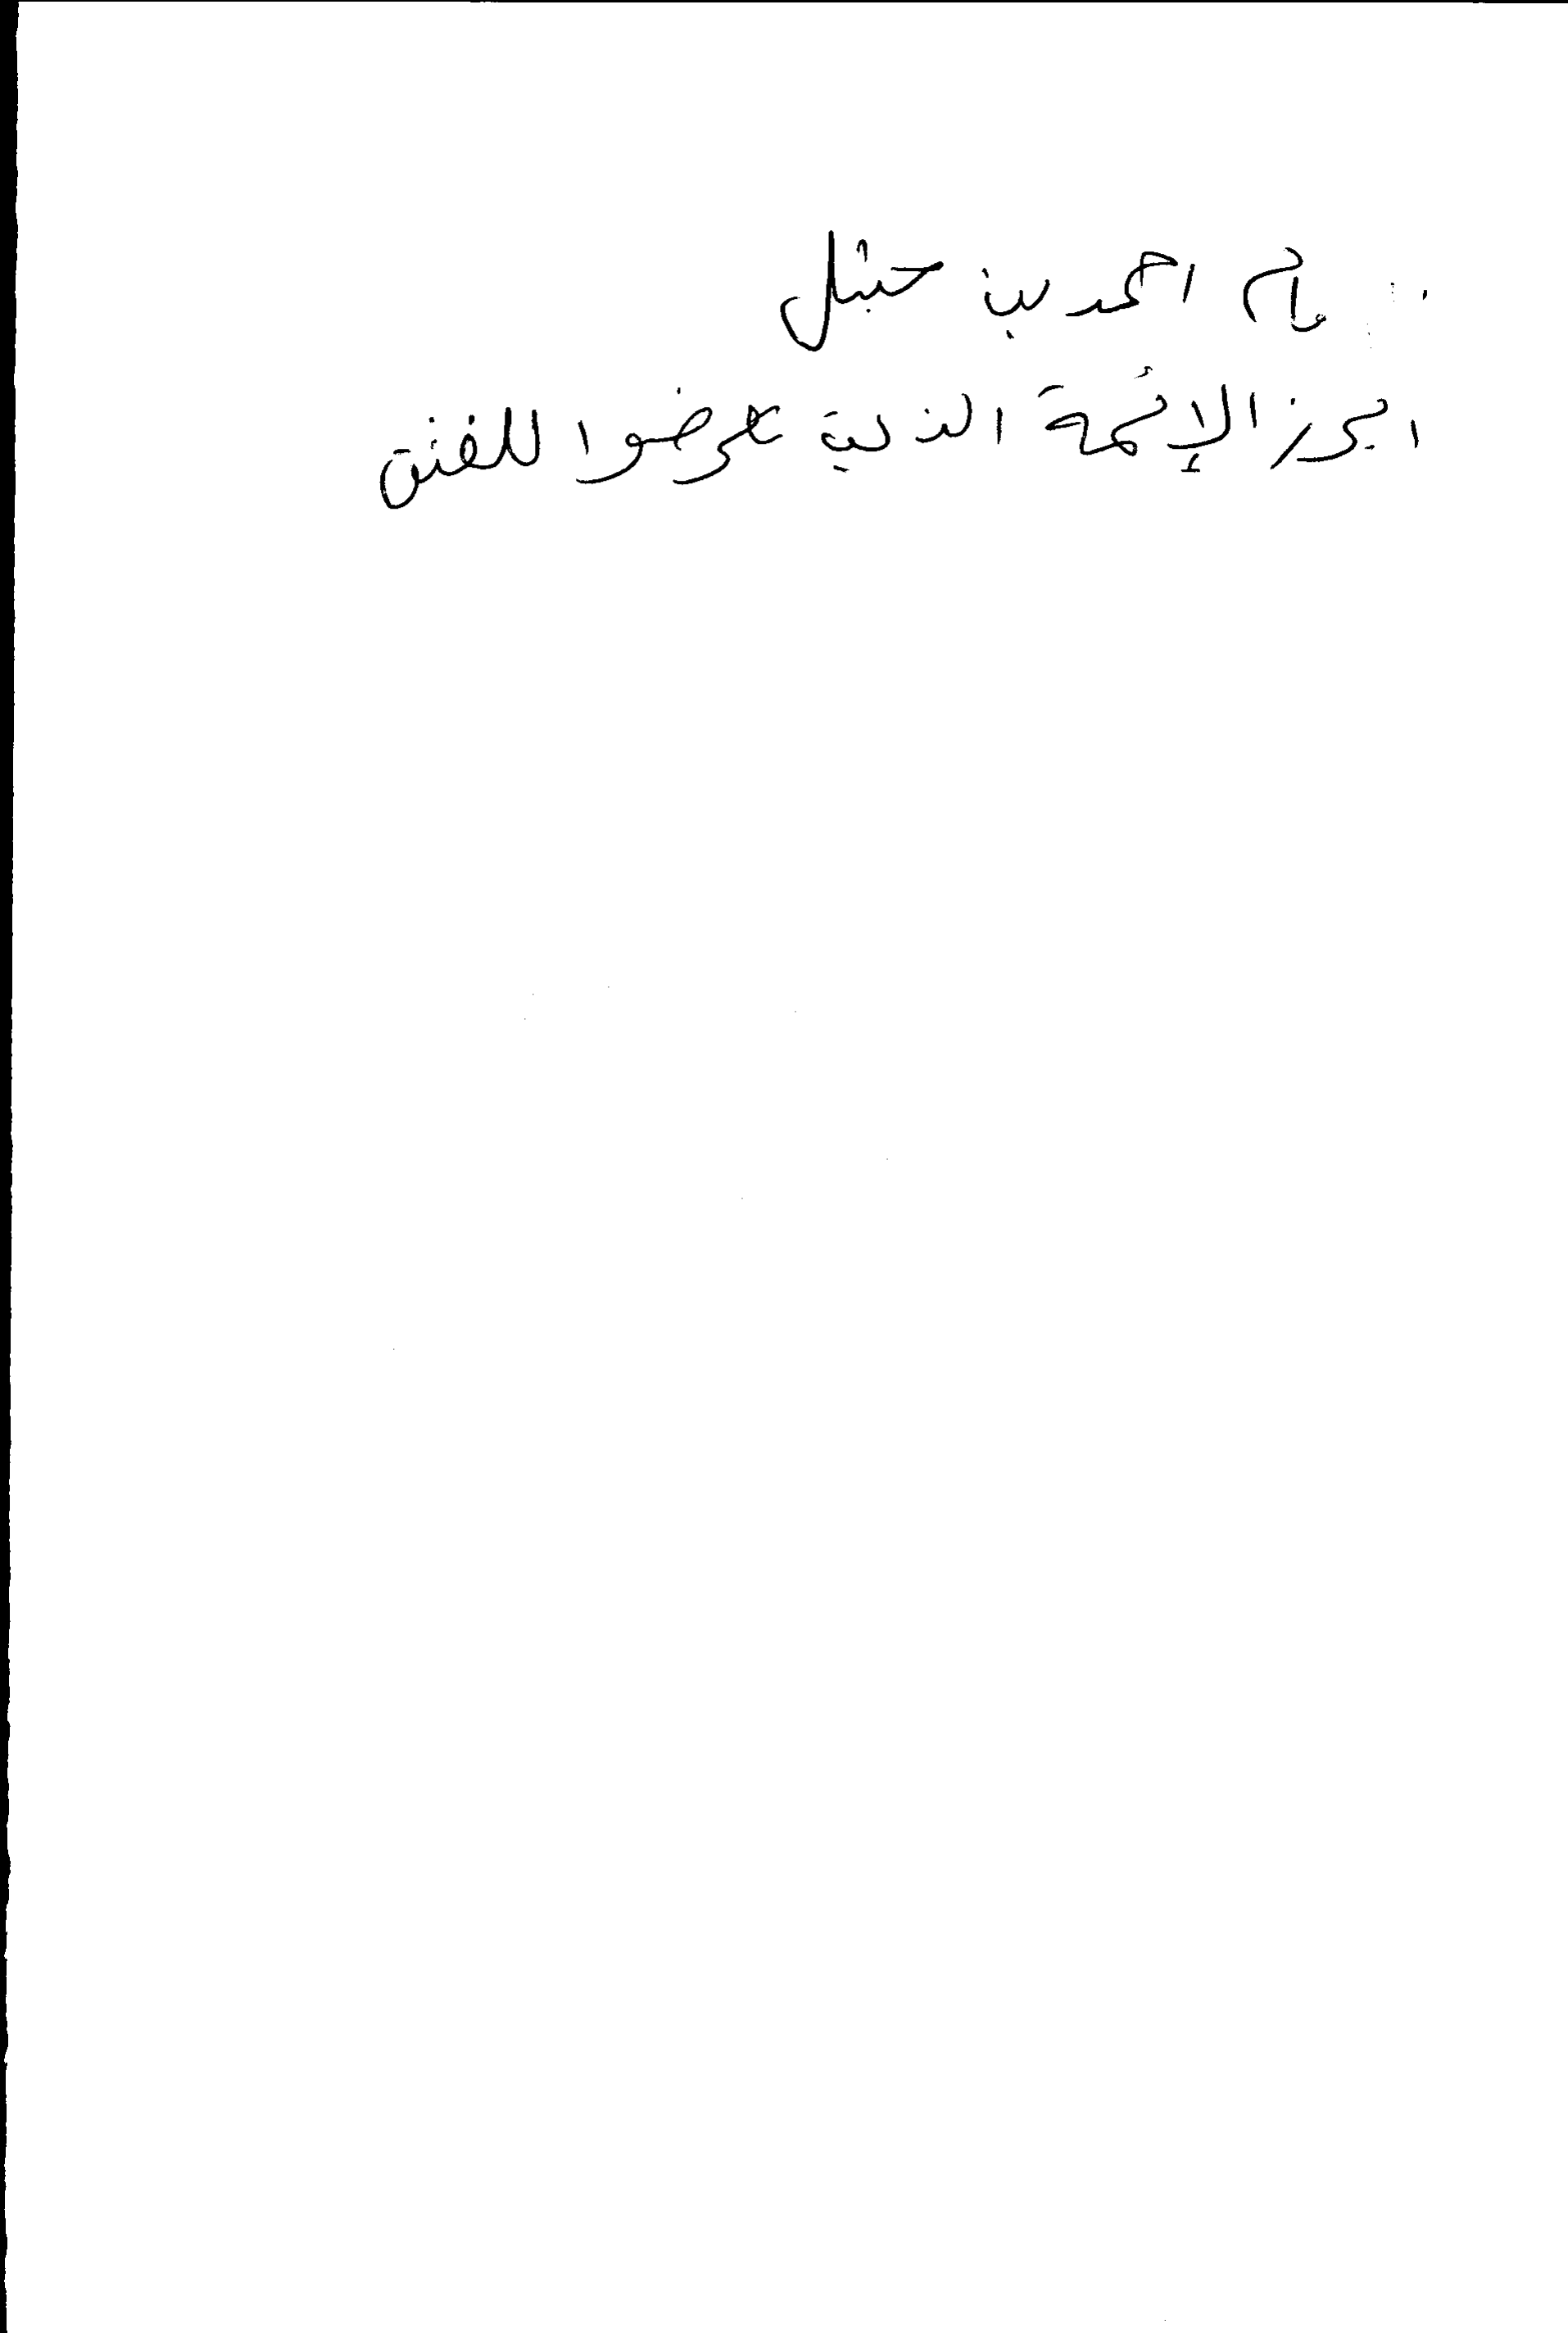 مام احمد بن حنبل
ابرز الإئمة الذين تعرضوا للفتن